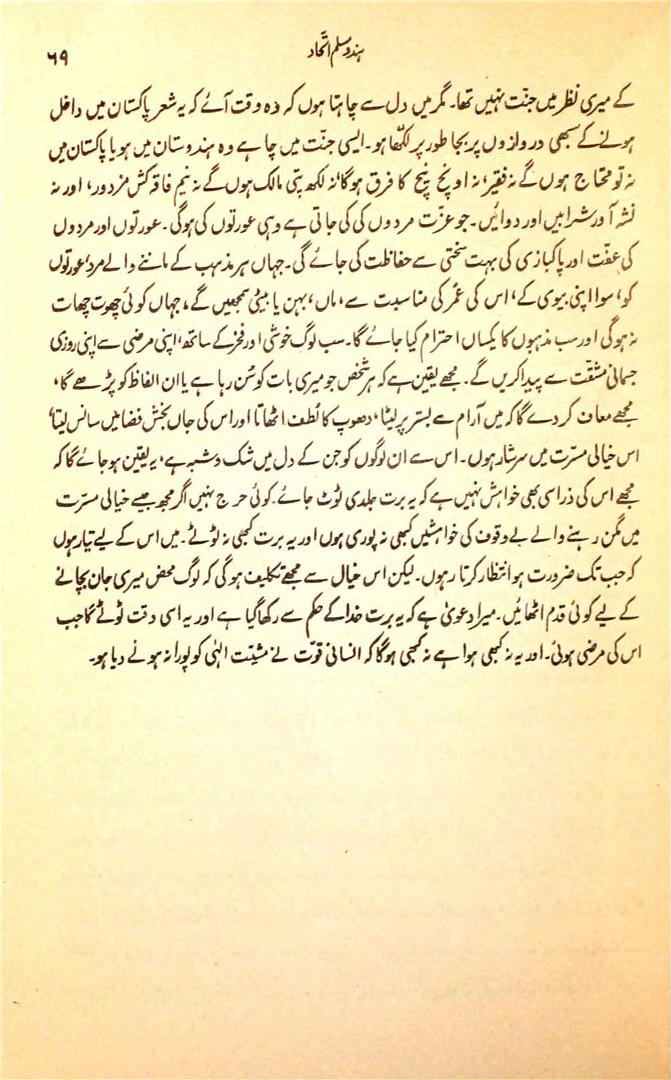 ہندو مسلم اتحّاد
۶۹
کے میری نظر میں جنّت نہیں تھا۔ مگر میں دل سے چاہتا ہوں کہ وہ وقت آئے کہ یہ شعر پاکستان میں داخل
ہونے کے سبھی دروازوں پر بجا طور پر لکھّا ہو۔ ایسی جنّت میں چاہے وہ ہندوستان میں ہو یا پاکستان میں
نہ تو محتاج ہوں گے نہ فقیر، نہ اونچ نیچ کا فرق ہوگا نہ لکھ پتی مالک ہوں گے نہ نیم فاقہ کش مزدور، اور نہ
نشہ آور شرابیں اور دوائیں۔ جو عزّت مردوں کی کی جاتی ہے وہی عورتوں کی ہوگی۔ عورتوں اور مردوں
کی عفّت اور پاکبازی کی بہت سختی سے حفاظت کی جائے گی۔ جہاں ہر مذہب کے ماننے والے مرد، عورتوں
کو، سوا اپنی بیوی کے، اس کی عمُر کی مناسبت سے، ماں، بہن یا بیٹی سمجھیں گے، جہاں کوئی چھوت چھات
نہ ہوگی اور سب مذہبوں کا یکساں احترام کیا جائے گا۔ سب لوگ خوشی اور فخر کے ساتھ، اپنی مرضی سے اپنی روزی
جسمانی مشقّت سے پیدا کریں گے۔ مجھے یقین ہے کہ ہر شخص جو میری بات کو سُن رہا ہے یا ان الفاظ کو پڑھے گا،
مجھے معاف کر دے گا کہ میں آرام سے بستر پر لیٹا، دھوپ کا لُطف اٹھاتا اور اس کی جاں بخش فضا میں سانس لیتا،
اس خیالی مسرّت میں سرشار ہوں۔ اس سے ان لوگوں کو جن کے دل میں شک و شبہ ہے، یہ یقین ہو جائے گا کہ
مجھے اس کی ذرا سی بھی خواہش نہیں ہے کہ یہ برت جلدی ٹوٹ جائے۔ کوئی حرج نہیں اگر مجھ جیسے خیالی مسرّت
میں مگن رہنے والے بے وقوف کی خواہشیں کبھی نہ پوری ہوں اور یہ برت کبھی نہ ٹوٹے۔ میں اس کے لیے تیار ہوں
کہ جب تک ضرورت ہو انتظار کرتا رہوں۔ لیکن اس خیال سے مجھے تکلیف ہوگی کہ لوگ محض میری جان بچانے
کے لیے کوئی قدم اٹھائیں۔ میرا دعویٰ ہے کہ یہ برت خدا کے حکم سے رکھا گیا ہے اور یہ اسی وقت ٹوٹے گا جب
اس کی مرضی ہوئی۔ اور یہ نہ کبھی ہوا ہے نہ کبھی ہوگا کہ انسانی قوّت نے مشیّت الٰہی کو پورا نہ ہونے دیا ہو۔